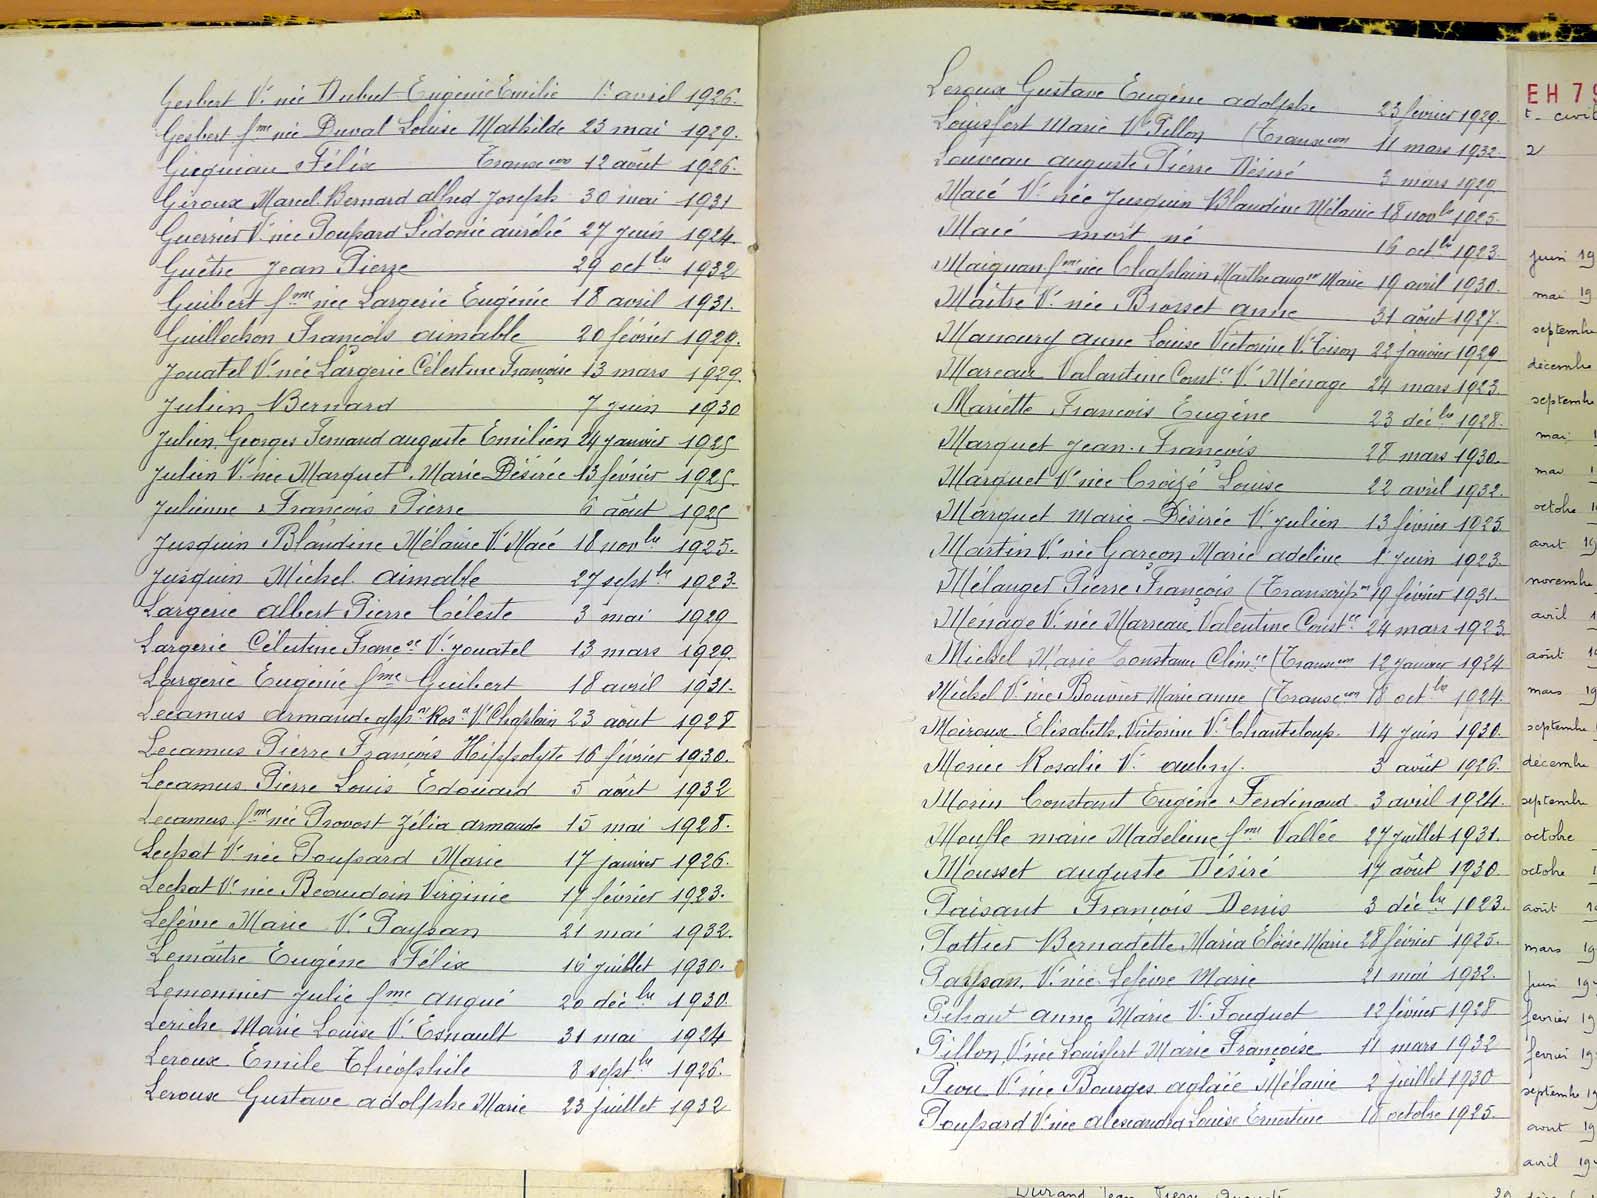 Gesbert Ve née Dubut Eugénie Emilie 1er avril 1926.
Gesbert fme née Duval Louise Mathilde 23 mai 1929.
Gicquiau Félix Transcon 12 août 1926.
Giroux Marcel Bernard alfred Joseph 30 mai 1931
Guerrier Ve née Poupard Sidonie aurélie 27 juin 1924.
Guêtre Jean Pierre 29 octbre 1932
Guibert fme née Largerie Eugénie 18 avril 1931.
Guillochon François aimable 20 février 1929.
Jouatel Ve née Largerie Célestine Françoise 13 mars 1929.
Julien Bernard 7 juin 1930
Julien Georges Fernand auguste Emilien 24 janvier 1925
Julien Ve née Marquet Marie Désirée 13 février 1925.
Julienne François Pierre 6 août 1925
Jusquin Blandine Mélanie Ve Macé 18 novbre 1925.
Jusquin Michel aimable 27 septbre 1923.
Largerie albert Pierre Céleste 3 mai 1929
Largerie Célestine Franse Ve Jouatel 13 mars 1929.
Largerie Eugénie fme Guibert 18 avril 1931.
Lecamus armande Rosne Ve Chaplain 23 août 1928
Lecamus Pierre François Hippolyte 16 février 1930.
Lecamus Pierre Louis Edouard 5 août 1932
Lecamus fme née Provost Zélia armande 15 mai 1928.
Lechat Ve née Poupard Marie 17 janvier 1926.
Lechat Ve née Beaudoin Virginie 17 février 1923.
Lefèvre Marie Ve Paysan 21 mai 1932.
Lemaître Eugène Félix 16 juillet 1930.
Lemonnier Julie fme angué 20 décbre 1930.
Leriche Marie Louise Ve Esnault 31 mai 1924
Leroux Emile Théophile 8 septbre 1926.
Leroux Gustave adolphe Marie 23 juillet 1932
Leroux Gustave Eugène adolphe 23 février 1929.
Louisfert Marie Ve Pillon (Transcon 11 mars 1932.
Louveau auguste Pierre Désiré 3 mars 1929
Macé Ve née Jusquin Blandine Mélanie 18 novbre 1925.
Macé mort né 16 octbre 1923.
Maignan fme née Chaplain Marthe augne Marie 19 avril 1930.
Maître Ve née Brosset anne 31 août 1927.
Mancury anne Louise Victorine Ve Tison 22 janvier 1929
Mareau Valantine Constce Ve Ménage 24 mars 1923.
Mariette François Eugène 23 décbre 1928.
Marquet Jean François 28 mars 1930.
Marquet Ve née Croizé Louise 22 avril 1932.
Marquet Marie Désirée Ve Julien 13 février 1925
Martin Ve née Garçon Marie adeline 1er juin 1923.
Mélanger Pierre François (Transcripon 19 février 1931.
Ménage Ve née Marreau Valentine Constce 24 mars 1923.
Michel Marie Constance Clémce (Transcon 12 janvier 1924
Michel Ve née Bouvier Marie anne (Transcon 18 octbre 1924.
Moiroux Elisabeth Victorine Ve Chanteloup 14 juin 1930.
Morice Rosalie Ve aubry. 3 août 1926.
Morin Constant Eugène Ferdinand 3 avril 1924.
Moufle marie Madeleine fme Vallée 27 juillet 1931.
Mousset auguste Désiré 17 août 1930
Paisant François Denis 3 décbre 1923.
Pottier Bernadette Maria Eloïse Marie 28 février 1925.
Paysan Ve née Lefèvre Marie 21 mai 1932.
Pihaut anne Marie Ve Fouquet 12 février 1928
Pillon Ve née Louisfert Marie Françoise 11 mars 1932
Piou Ve née Bourges aglaée Mélanie 2 juillet 1930
Poupard Ve née alexandra Louise Ernestine 18 octobre 1925.
EH 79
t- civil
2
juin 19
mai 19
septembre
décembre
septembre
mai 1
mai 1
octobre 1
avril 19
novembre
avril 1
août 19
mars 19
septembre
décembre
septembre
octobre
octobre 1
août 19
mars 19
juin 19
février 19
février 19
septembre 19
août 19
avril 19
Durand Jean Pierre